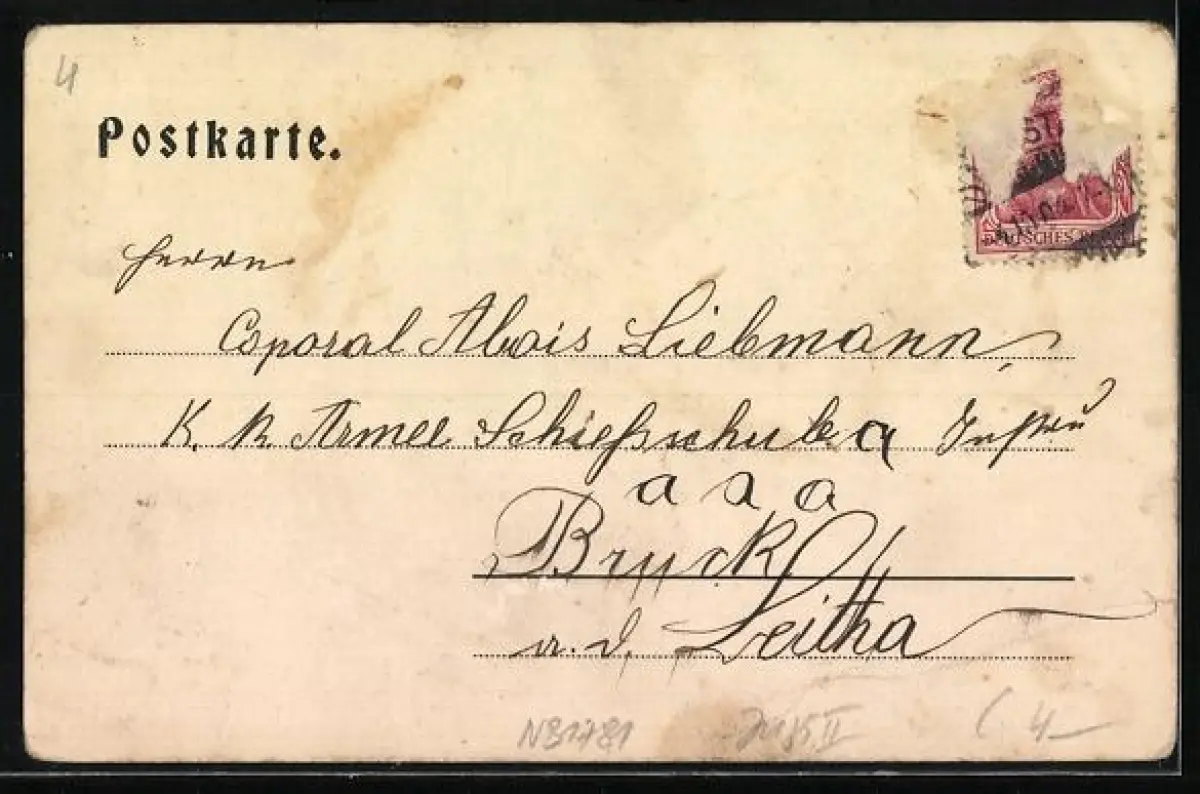 4
Postkarte.
DEUTSCHES REICH
Herrn
Coporal Alois Liebmann,
K. K. Armee Schießschule
a a a
Bruck
a. d. Leitha
N81781
4